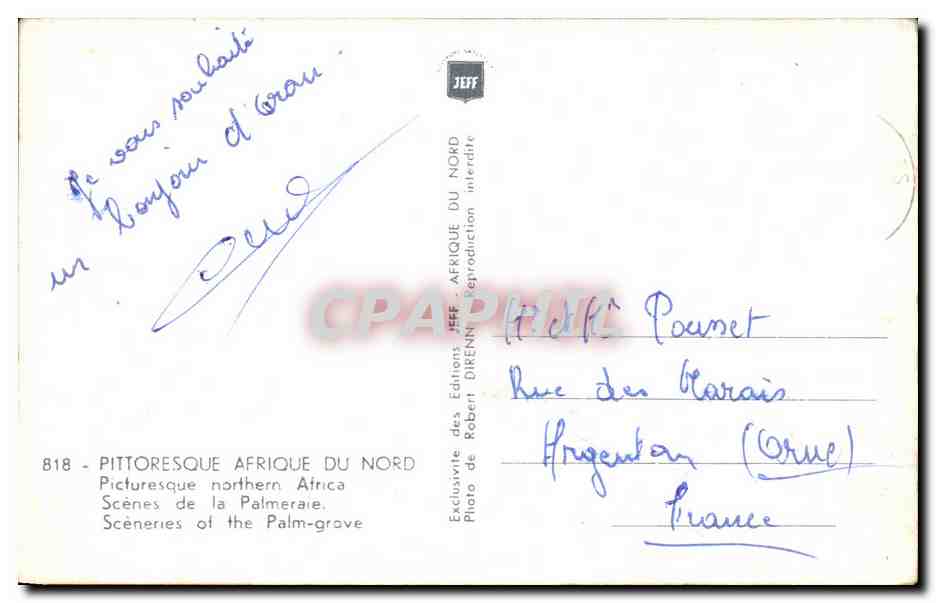 Je vous souhaite
un bonjour d'Oran.
818 - PITTORESQUE AFRIQUE DU NORD
Picturesque northern Africa
Scènes de la Palmeraie.
Scèneries of the Palm-grove
JEFF
Exclusivite des Editions JEFF - AFRIQUE DU NORD
Photo de Robert DIRENN Reproduction interdite
CPAPHIL
Rue des Marais
Argentan (Orne)
France